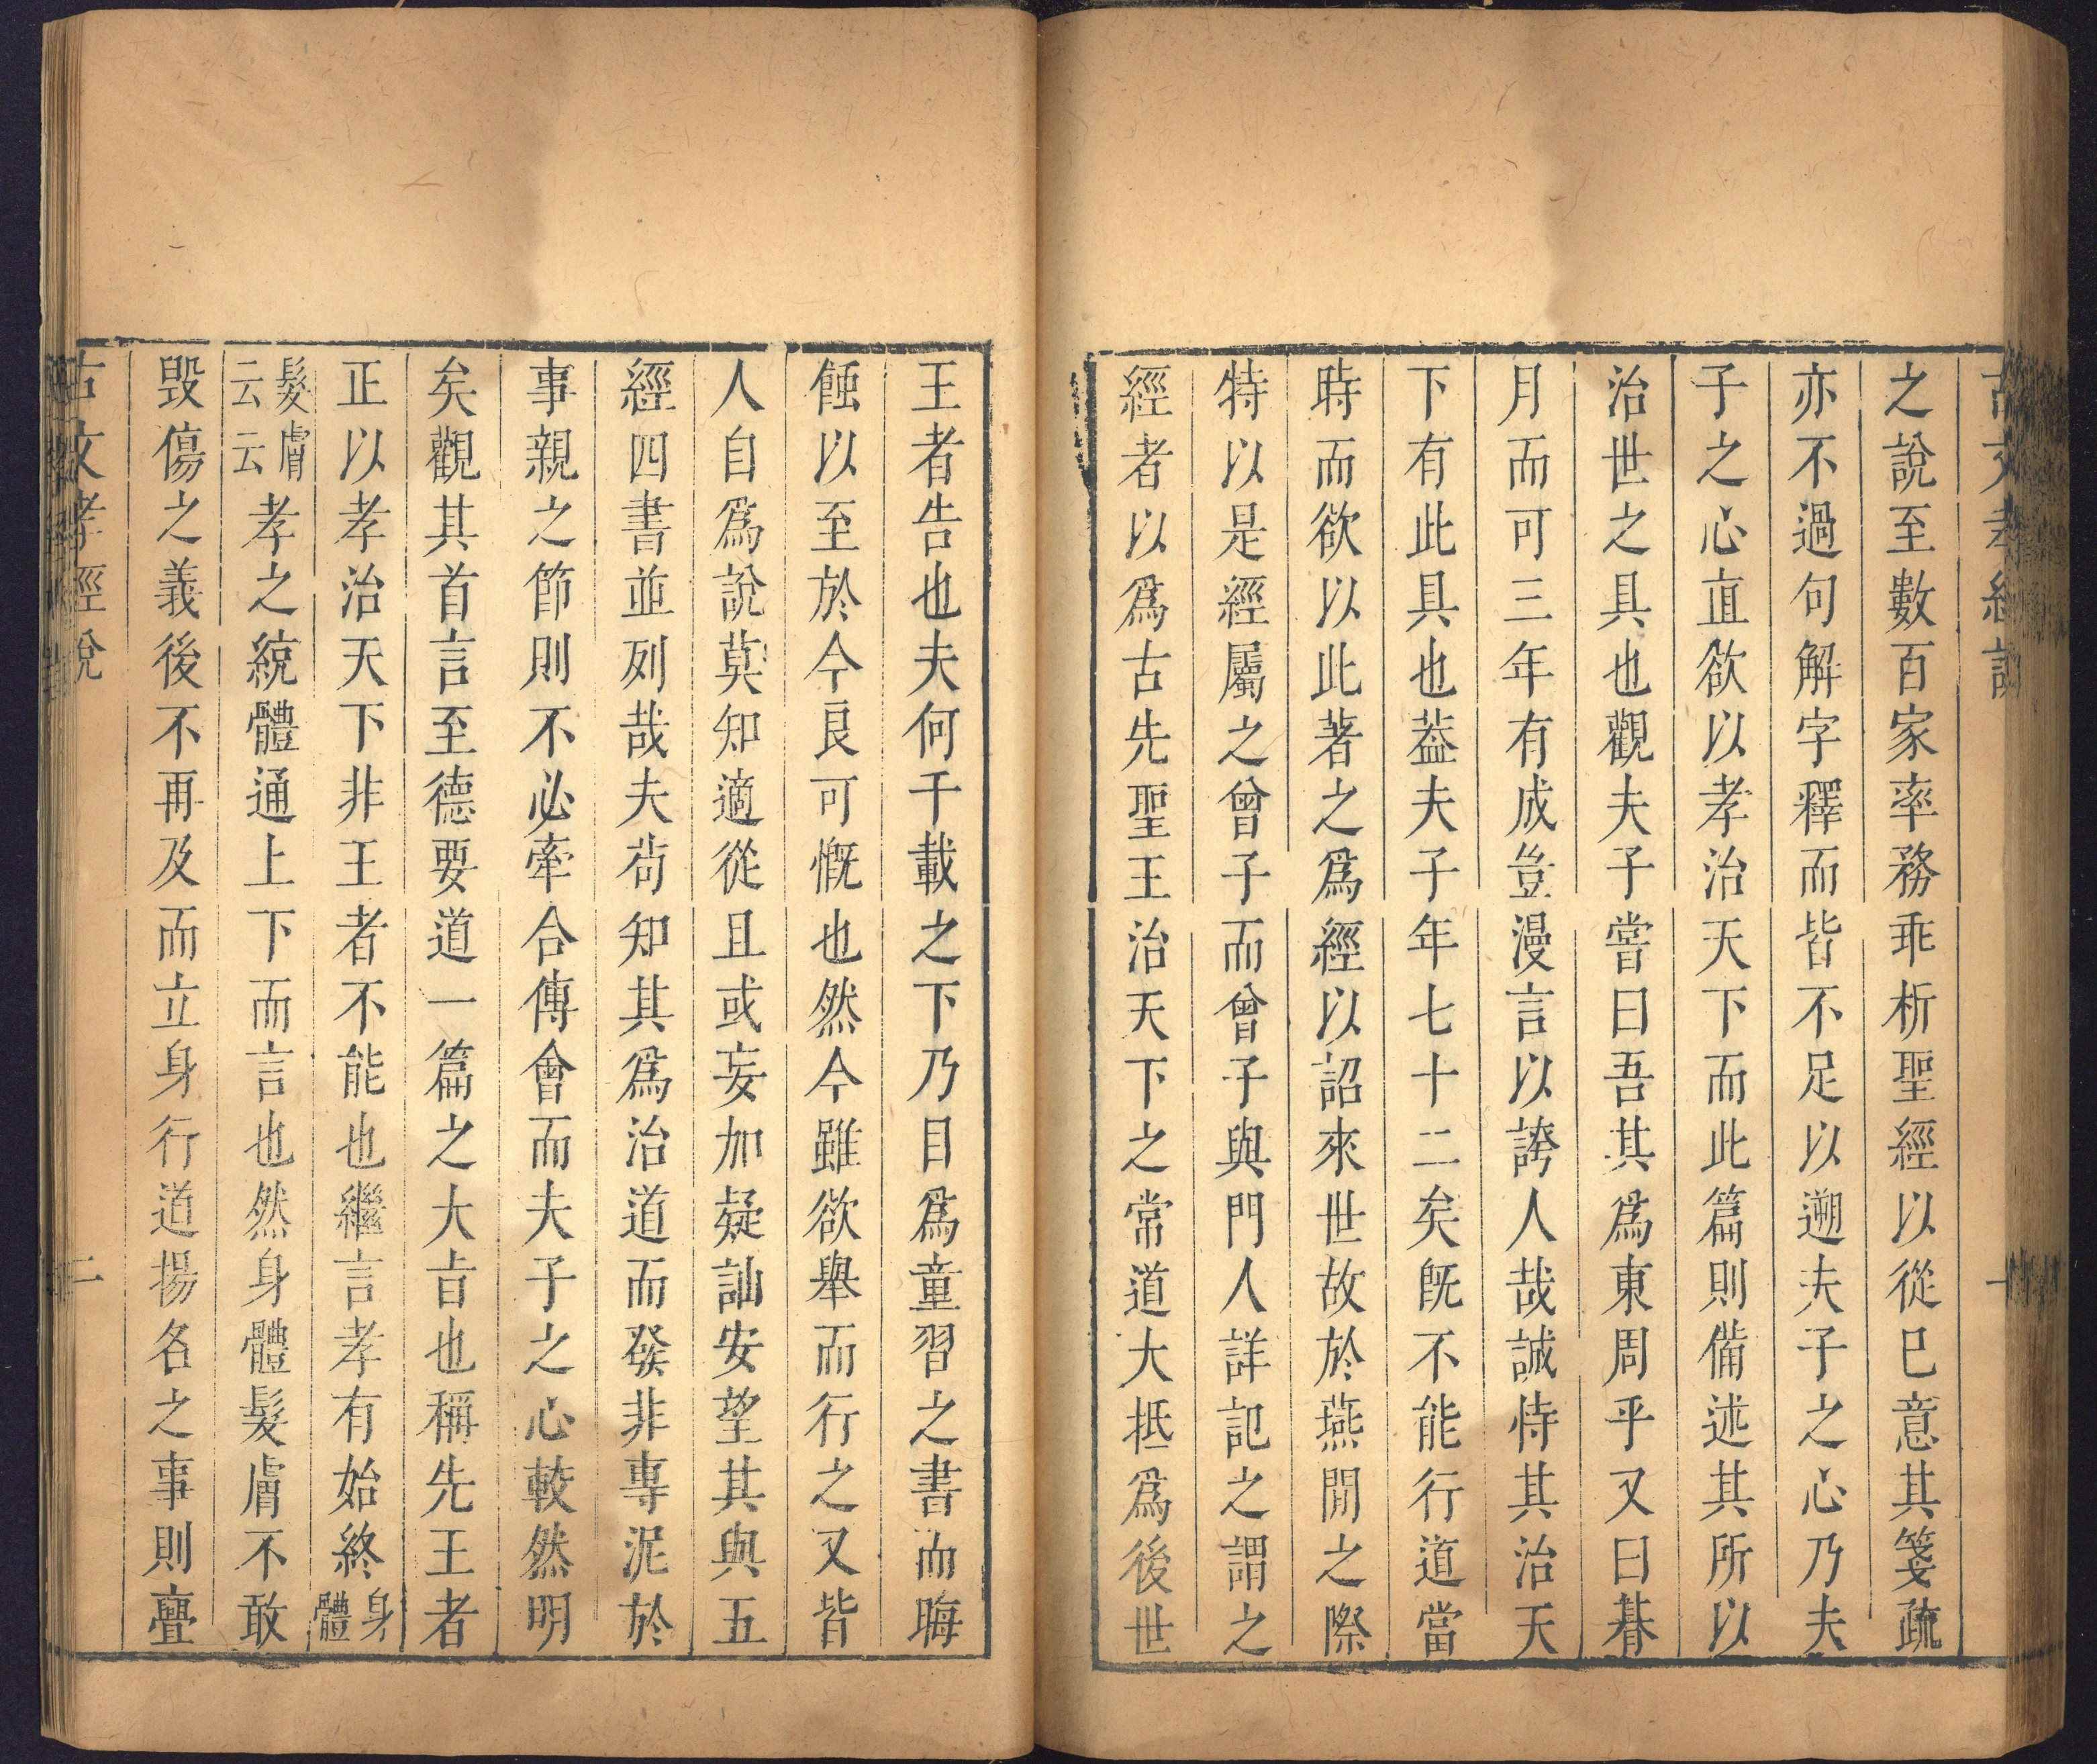 古文孝經說
一
之說至數百家率務乖析聖經以從巳意其箋疏
亦不過句解字釋而皆不足以遡夫子之心乃夫
子之心直欲以孝治天下而此篇則備述其所以
治世之具也觀夫子嘗曰吾其爲東周乎又曰朞
月而可三年有成豈漫言以誇人哉誠恃其治天
下有此具也葢夫子年七十二矣旣不能行道當
時而欲以此著之爲經以詔來世故於燕閒之際
特以是經屬之曾子而曾子與門人詳記之謂之
經者以爲古先聖王治天下之常道大抵爲後世
王者告也夫何千載之下乃目爲童習之書而晦
蝕以至於今良可慨也然今雖欲舉而行之又皆
人自爲說莫知適從且或妄加疑訕安望其與五
經四書並列哉夫茍知其爲治道而發非專泥於
事親之節則不必牽合傳會而夫子之心較然明
矣觀其首言至德要道一篇之大㫖也稱先王者
正以孝治天下非王者不能也繼言孝有始終身體
髮膚云云孝之統體通上下而言也然身體髮膚不敢
毀傷之義後不再及而立身行道揚名之事則亹
古文孝經說
二